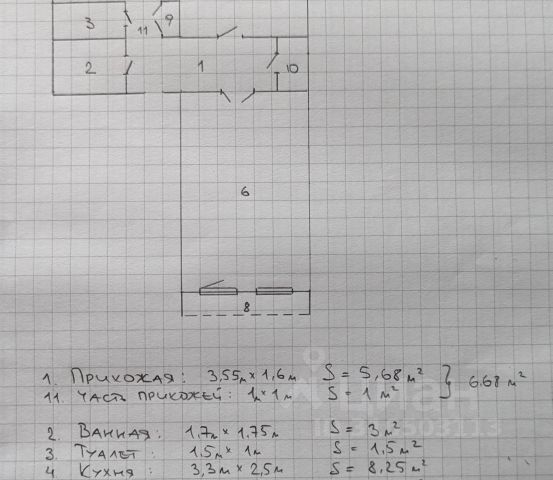 3
11
9
2
1
10
6
8
1. ПРИХОЖАЯ: 3,55м × 1,6м S = 5,68 м² } 6.68 м²
11. ЧАСТЬ ПРИХОЖЕЙ: 1м × 1м S = 1 м²
2. ВАННАЯ: 1,7м × 1,75м S = 3 м²
3. ТУАЛЕТ: 1,5м × 1м S = 1,5 м²
4 КУХНЯ: 3,3м × 2,5м S = 8,25 м²